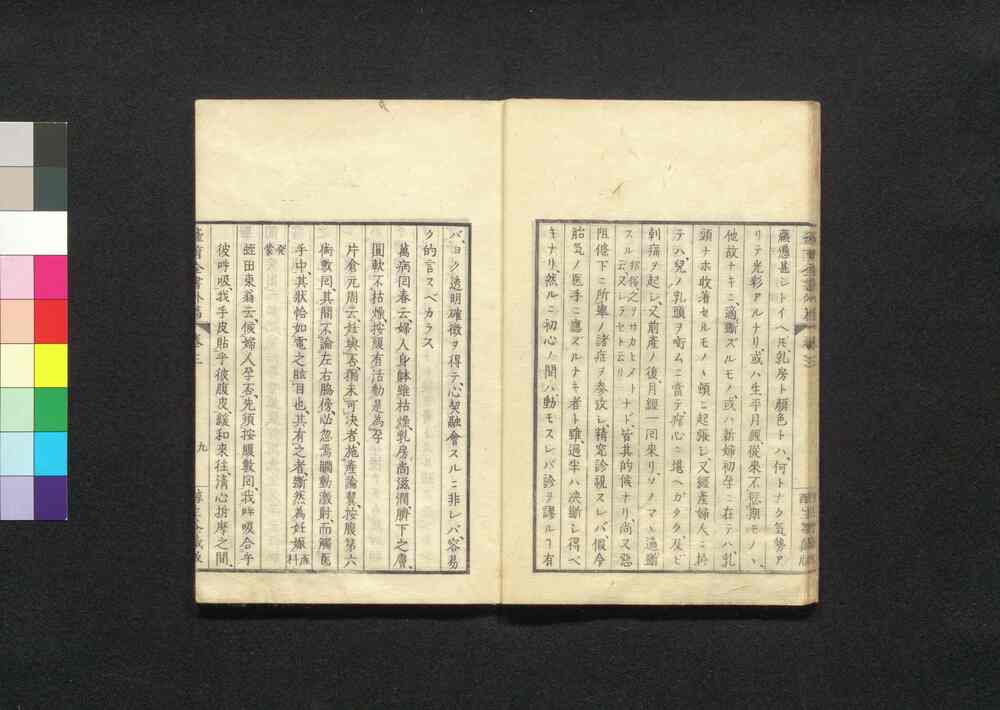 羸憊甚シトイヘモ乳房ト顏色トハ、何トナク氣勢ア
リテ光彩アルナリ、或ハ生平月經從來不愆期モノヽ、
他故ナキニ、適斷ズルモノ、或ハ新婦初孕ニ在テハ乳
頭ナホ收着セルモノヽ頓ニ起脹シ、又經產婦人ニ於
テハ、兒ノ乳頭ヲ銜ムニ當テ痛心ニ堪ヘガタク及ビ
刺痛ヲ起シ、又前產ノ後月經一回來リソノマヽ過斷
スル 邦俗之ヲサカヒメト云、又シラセト云リ ナド、皆其的候ナリ、尚又惡
阻條下ニ所擧ノ諸症ヲ參攷シ、精密診視スレバ、假令
胎氣ノ医手ニ應ズルナキ者ト雖、過半ハ決斷シ得ベ
キナリ、然ルニ初心ノ間ハ、動モスレバ診ヲ謬ルヿ有
バ、ヨク透明確徵ヲ得テ、心契融會スルニ非レバ、容易
ク的言スベカラス
萬病回春云、婦人身體雖枯燥、乳房尚滋潤、臍下之膚、
圓軟不枯燥、按腹有活動、是為孕
片倉元周云、妊與否、猶未可決者、施產論翼按腹第六
術數回、其間不論左右脇傍、必忽焉膶動激射、而觸配
手中、其狀恰如電之眩目也、其有之者、斷然為妊娠 產科發蒙
蛭田東翁云、候婦人孕否、先須按腹數回、我呼吸合乎
彼呼吸、我手皮貼乎彼腹皮、緩和來往、清心揣摩之間、
產育全書外篇 卷三 九